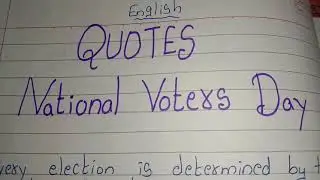 English
QUOTES
National Voters Day
very election is determined by